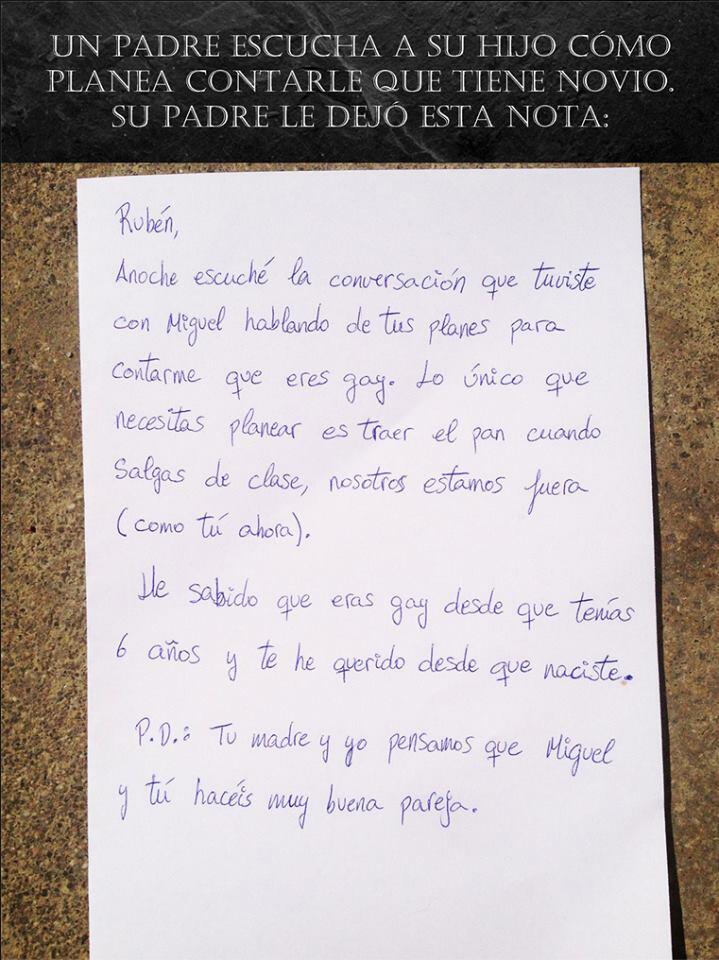 UN PADRE ESCUCHA A SU HIJO CÓMO
PLANEA CONTARLE QUE TIENE NOVIO.
SU PADRE LE DEJÓ ESTA NOTA:
Rubén,
Anoche escuché la conversación que tuviste
con Miguel hablando de tus planes para
contarme que eres gay. Lo único que
necesitas planear es traer el pan cuando
salgas de clase, nosotros estamos fuera
(como tú ahora).
He sabido que eras gay desde que tenías
6 años y te he querido desde que naciste.
P.D.: Tu madre y yo pensamos que Miguel
y tú hacéis muy buena pareja.